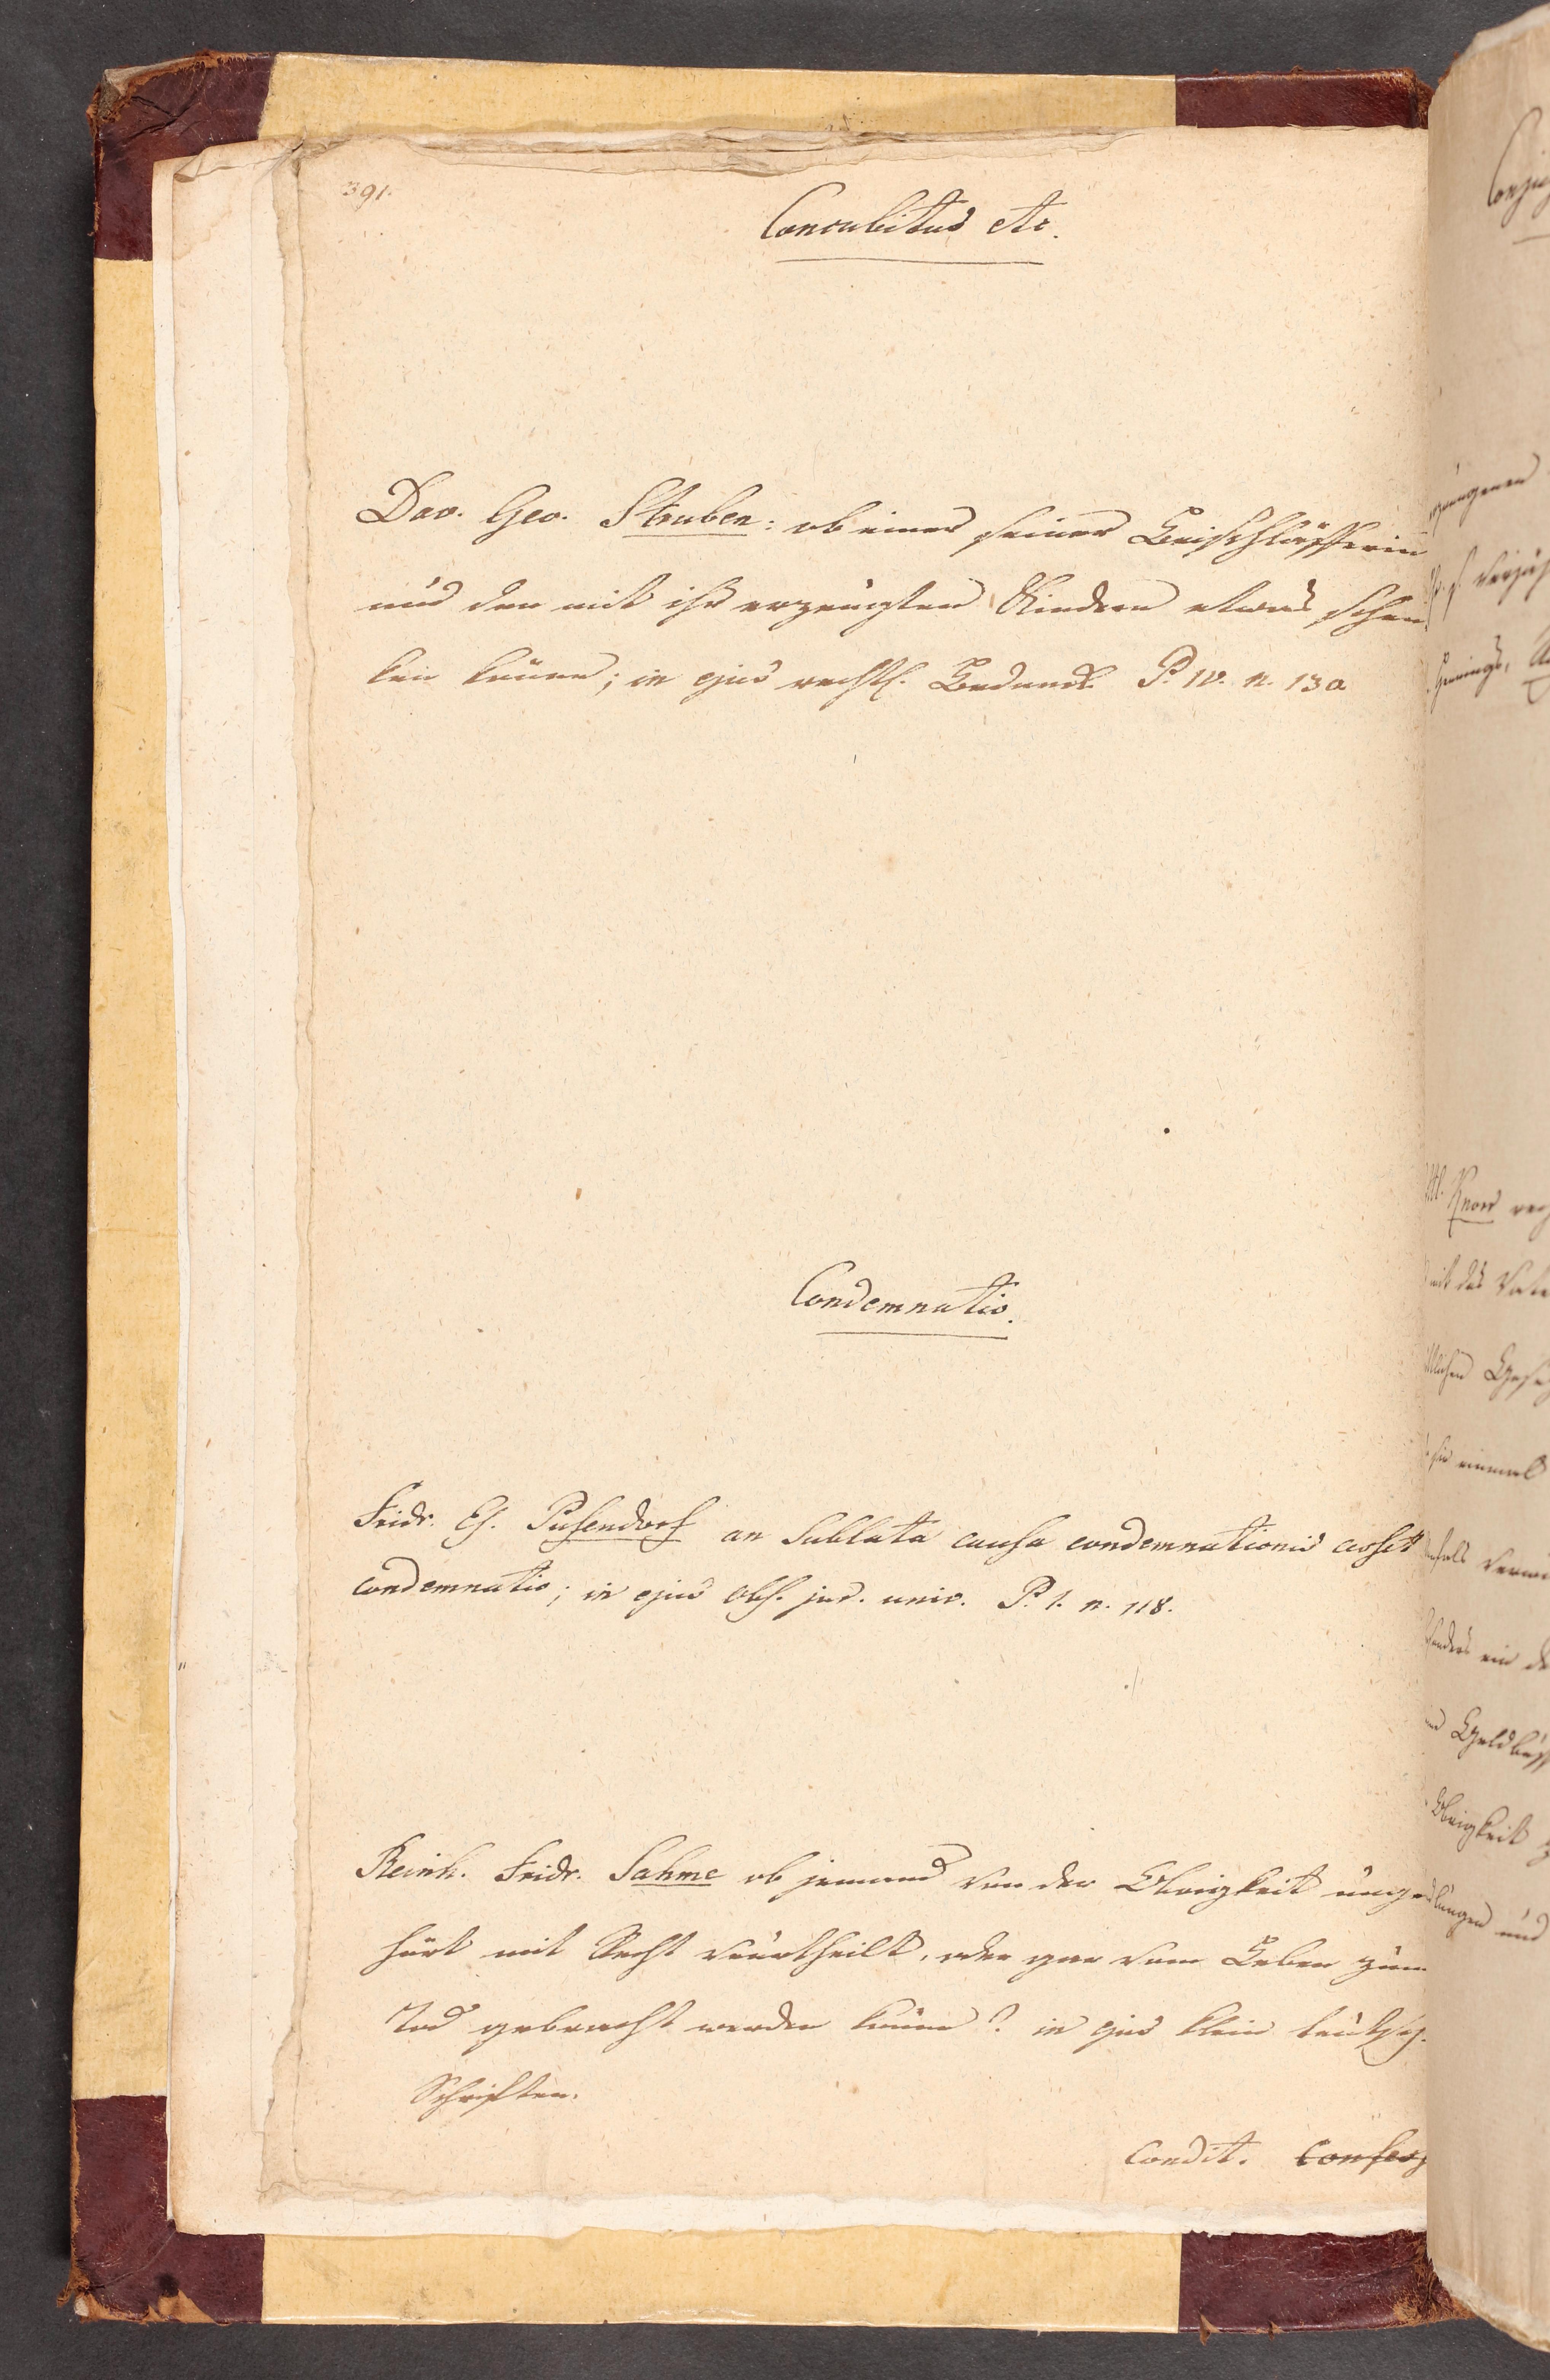 391.
Concubitus etc.
Dav. Geo. Struben: ob einer seiner Beischläfferin
und den mit ihr erzeugten Kindern etwas schen
ken könne; in ejus rechtl. Bedenck. P. IV. n. 130
Condemnatio.
Fridr. Es. Pufendorf an sublata causa condemnationis cesset
condemnatio; in ejus obs. jur. univ. P. 1. n. 118.
Reinh. Fridr. Sahme ob jemand von der Obrigkeit unge
hört mit Recht verurtheilt, oder gar vom Leben zum
Tod gebracht werden könne? in ejus klein teutsch.
Schriften.
Condit.
Knorr
mit das
einmal
ein
Obrigkeit
und